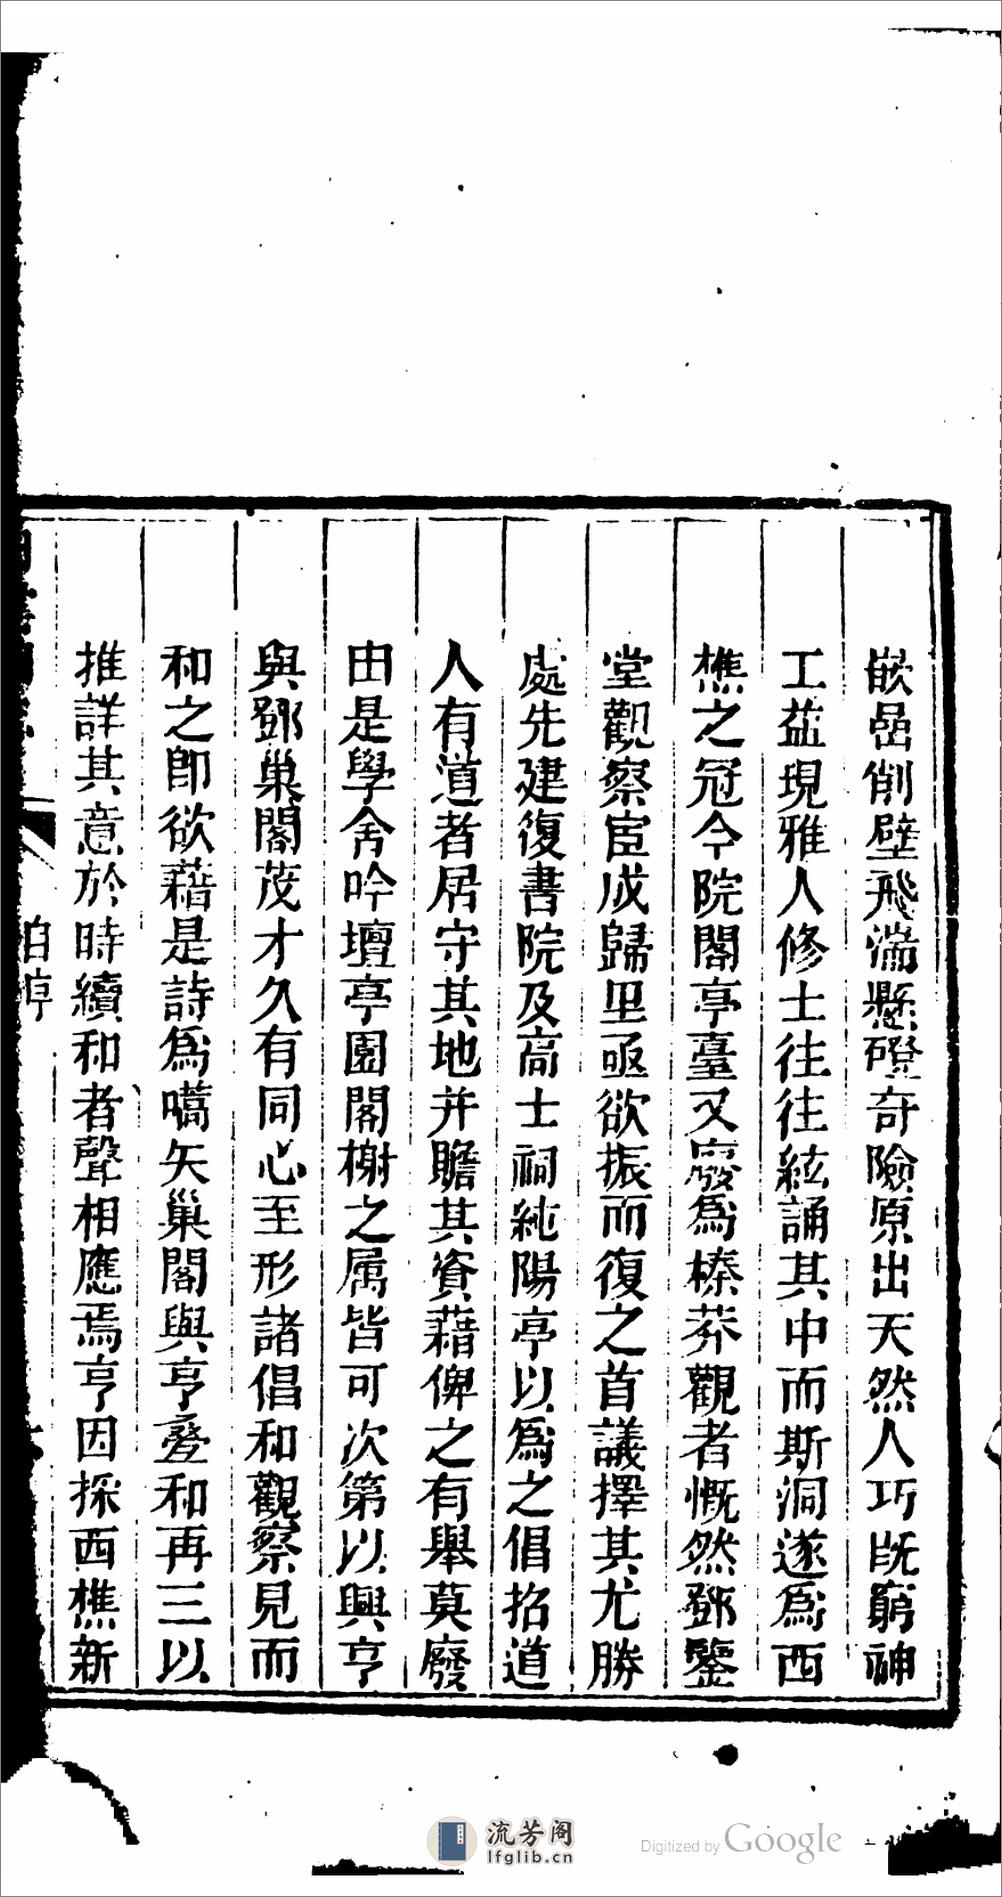 嵌嵒削壁飛湍懸磴奇險原出天然人巧旣窮神
工葢現雅人修士往往絃誦其中而斯洞遂爲西
樵之冠今院閣亭臺又廢爲榛莽觀者慨然鄧鑒
堂觀察宦成歸里亟欲振而復之首議擇其尤勝
處先建復書院及高士祠純陽亭以爲之倡招道
人有道者居守其地并贍其資藉俾之有舉莫廢
由是學舍吟壇亭園閣榭之屬皆可次第以興亨
與鄧巢閣茂才久有同心至形諸倡和觀察見而
和之卽欲藉是詩爲嚆矢巢閣與亨疊和再三以
推詳其意於時續和者聲相應焉亨因採西樵新
流芳阁
lfglib.cn
Digitized by Google